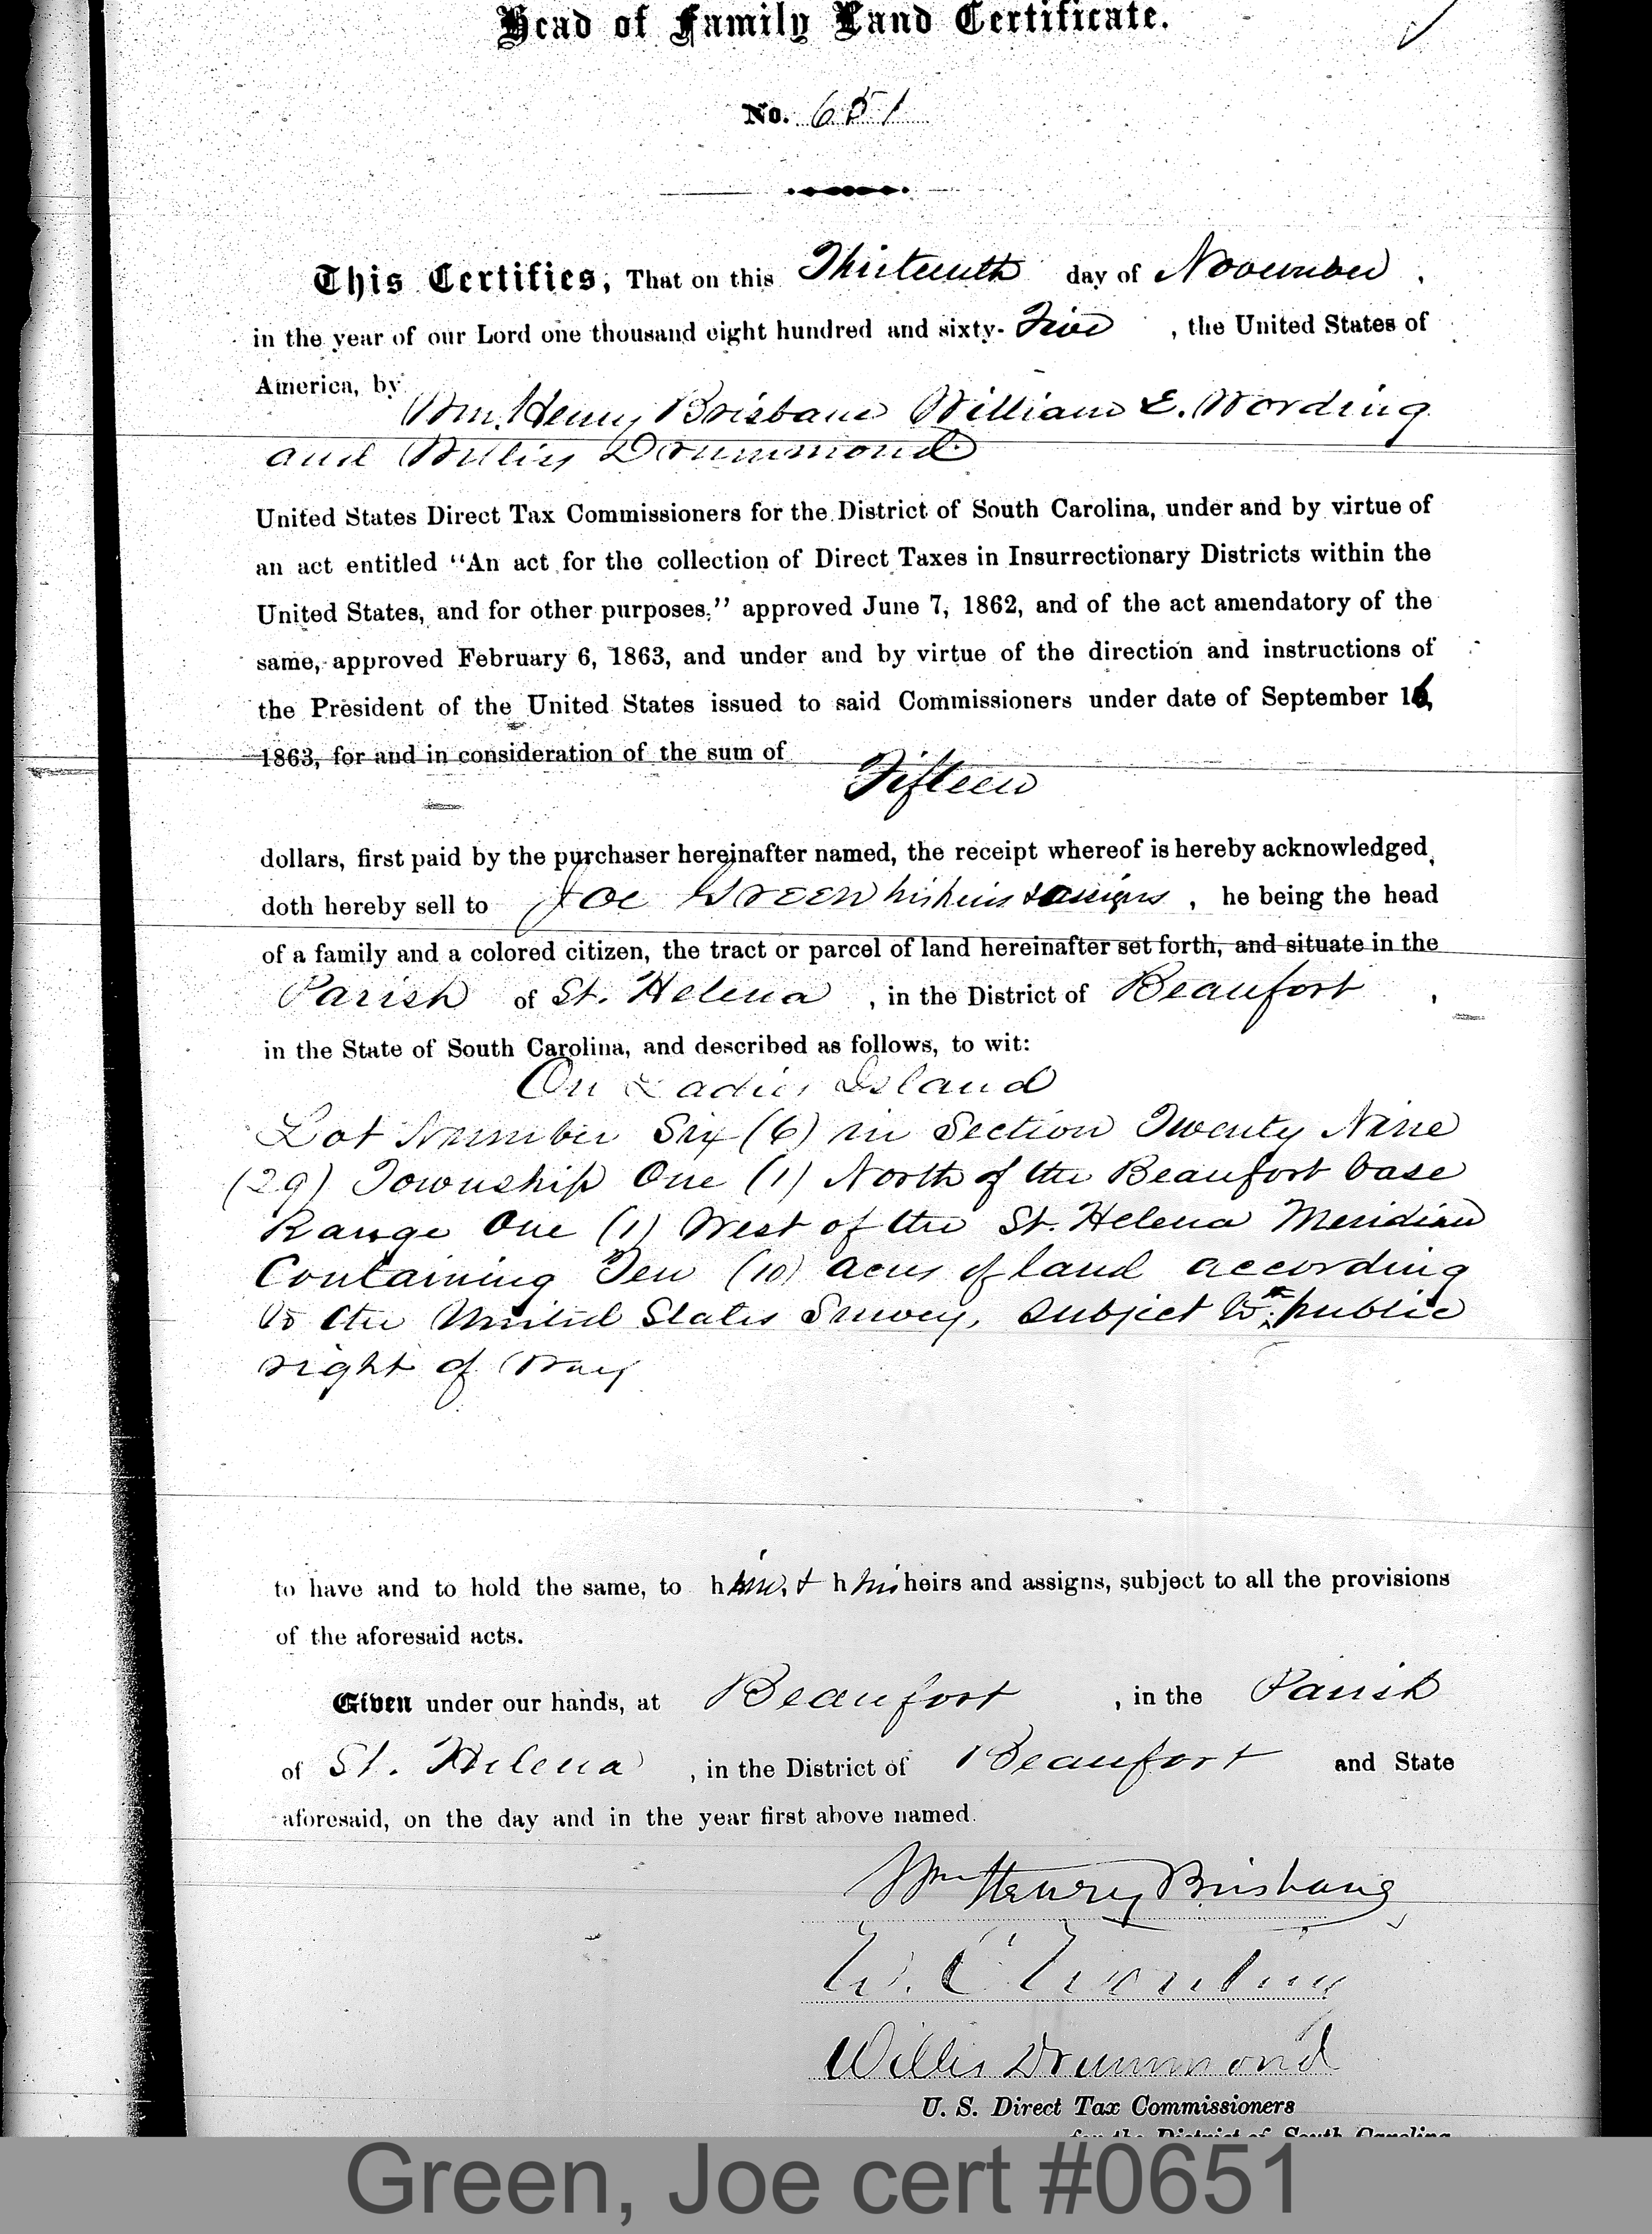 Head of Family Land Certificate.
No. 651
This Certifies, That on this Thirteenth day of November,
in the year of our Lord one thousand eight hundred and sixty-Five, the United States of
America, by
Wm. Henry Brisbane William E. Wording
and Willis Drummond
United States Direct Tax Commissioners for the District of South Carolina, under and by virtue of
an act entitled "An act for the collection of Direct Taxes in Insurrectionary Districts within the
United States, and for other purposes." approved June 7, 1862, and of the act amendatory of the
same, approved February 6, 1863, and under and by virtue of the direction and instructions of
the President of the United States issued to said Commissioners under date of September 16,
1863, for and in consideration of the sum of
Fifteen
dollars, first paid by the purchaser hereinafter named, the receipt whereof is hereby acknowledged,
doth hereby sell to Joe Green his heirs & assigns, he being the head
of a family and a colored citizen, the tract or parcel of land hereinafter set forth, and situate in the
Parish of St. Helena, in the District of Beaufort,
in the State of South Carolina, and described as follows, to wit:
On Ladies Island
Lot Number Six (6) in Section Twenty Nine
(29) Township One (1) North of the Beaufort base
Range One (1) West of the St. Helena Meridian
Containing Ten (10) acres of land according
to the United States Survey, subject to the public
right of Way
to have and to hold the same, to him, & h his heirs and assigns, subject to all the provisions
of the aforesaid acts.
Given under our hands, at Beaufort, in the Parish
of St. Helena, in the District of Beaufort and State
aforesaid, on the day and in the year first above named.
Wm Henry Brisbane
W. E. Wording
Willis Drummond
U. S. Direct Tax Commissioners
for the District of South Carolina
Green, Joe cert #0651